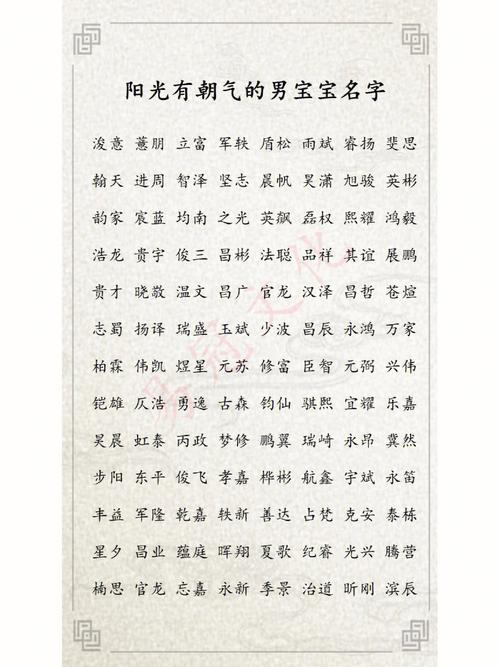 阳光有朝气的男宝宝名字
浚意 薏朋 立富 军轶 盾松 雨斌 睿扬 斐思
翰天 进周 智泽 坚志 晨帆 昊潇 旭骏 英彬
韵家 宸蓝 均南 之光 英飙 磊权 熙耀 鸿毅
浩龙 贵宇 俊三 昌彬 法聪 品祥 其谊 展鹏
贵才 晓敬 温文 昌广 官龙 汉泽 昌哲 苍煊
志蜀 扬译 瑞盛 玉斌 少波 昌辰 永鸿 万家
柏霖 伟凯 煜星 元苏 修富 臣智 元弼 兴伟
铠雄 仄浩 勇逸 古森 钧仙 骐熙 宜耀 乐嘉
昊晨 虹泰 丙政 梦修 鹏翼 瑞崎 永昂 冀然
步阳 东平 俊飞 孝嘉 桦彬 航鑫 宇斌 永笛
丰益 军隆 乾嘉 轶新 善达 占梵 克安 泰栋
星夕 昌业 蕴庭 晖翔 夏歌 纪睿 光兴 腾营
楠思 官龙 忘嘉 永新 季景 治道 昕刚 滨辰